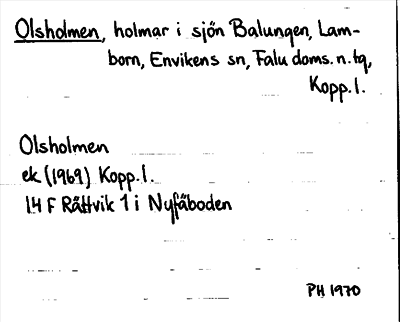 Olsholmen, holmar i sjön Balungen, Lam-
born, Envikens sn, Falu doms. n. tg,
Kopp. l.
Olsholmen
ek (1969) Kopp. l.
14 F Rättvik 1 i Nyfäboden
PH 1970